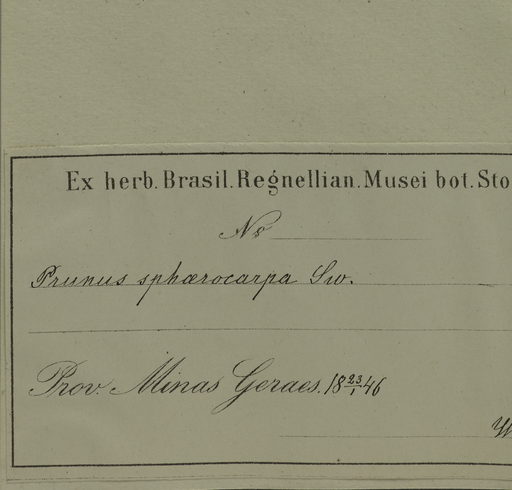 Ex herb. Brasil. Regnellian. Musei bot. Sto
No
Prunus sphærocarpa Sw.
Prov. Minas Geraes. 18 23/1 46